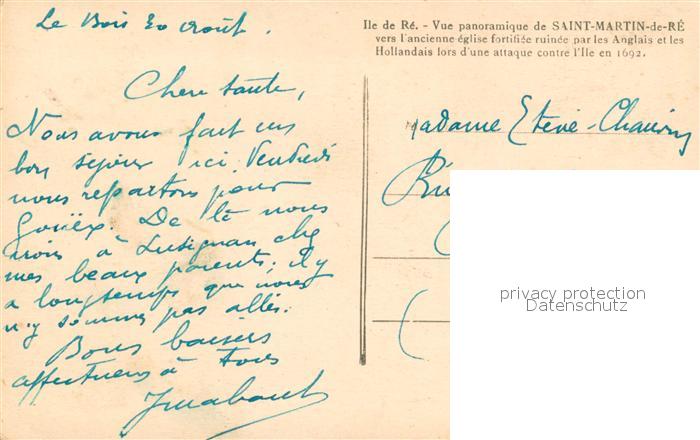 Le Bois 20 août.
Chère tante,
Nous avons fait un
bon séjour ici. Vendredi
nous repartons pour
De là nous
irons à Lusignan chez
mes beaux parents; il y
a longtemps que nous
n'y sommes pas allés.
Bons baisers
affectueux à tous
Ile de Ré. - Vue panoramique de SAINT-MARTIN-de-RÉ
vers l'ancienne église fortifiée ruinée par les Anglais et les
Hollandais lors d'une attaque contre l'Ile en 1692.
Madame
privacy protection
Datenschutz